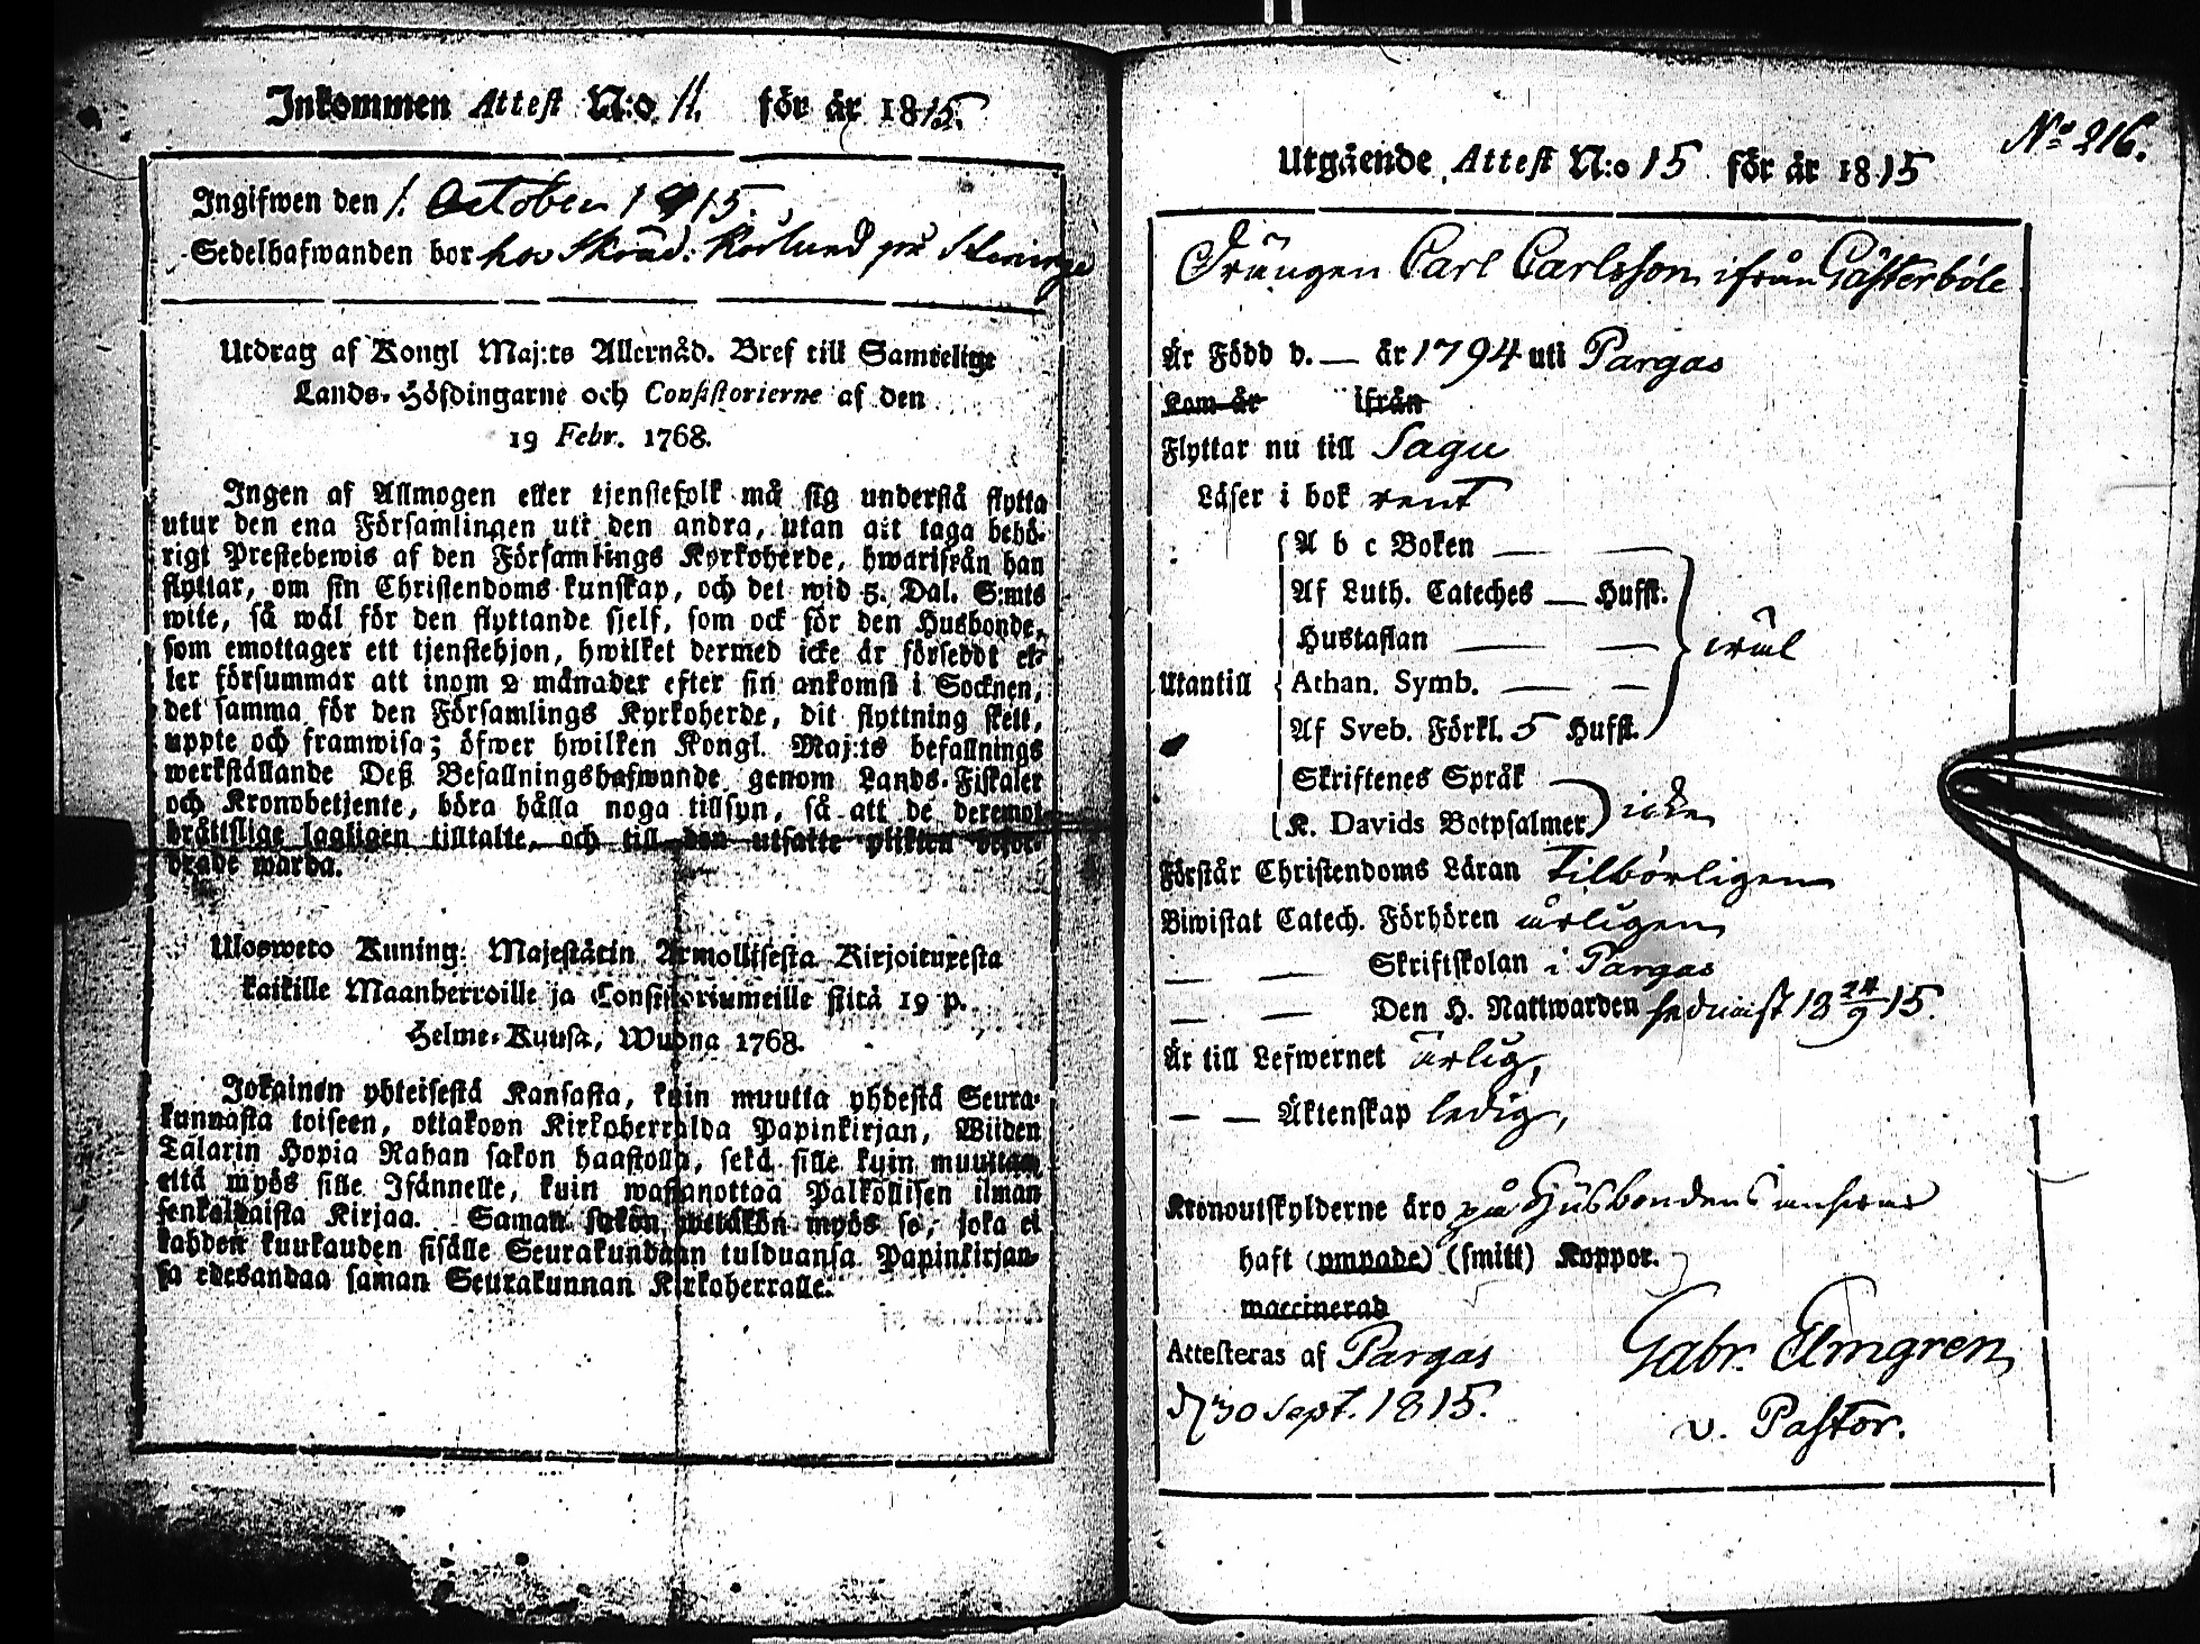 Inkommen Attest N:o 11. för år 1815.
Ingifwen den 1. October 1815.
Sedelhafwanden bor hos Skräd.
Utdrag af Kongl Maj:ts Allernåd. Bref till Samtelige
Lands-Höfdingarne och Consistorierne af den
19 Febr. 1768.
Ingen af Allmogen eller tjenstefolk må sig understå flytta
utur den ena Församlingen uti den andra, utan att taga behö-
rigt Prestebewis af den Församlings Kyrkoherde, hwarifrån han
flyttar, om sin Christendoms kunskap, och det wid 5. Dal. S:mts
wite, så wäl för den flyttande sjelf, som ock för den Husbonde,
som emottager ett tjenstehjon, hwilket dermed icke är försedt el-
ler försummar att inom 2 månader efter sin ankomst i Socknen,
det samma för den Församlings Kyrkoherde, dit flyttning skett,
uppte och framwisa; öfwer hwilken Kongl. Maj:ts befallnings
werkställande Deß Befallningshafwande genom Lands-Fiskaler
och Kronobetjente, böra hålla noga tillsyn, så att de deremot
bråttslige lagligen tilltalte, och till den utsatte plikten befor-
drade warda.
Ulosweto Kuning. Majestätin Armollisesta Kirjoituxesta
kaikille Maanherroille ja Consistoriumeille siitä 19 p.
Helme-Kuusa, Wuona 1768.
Jokainen yhteisestä Kansasta, kuin muutta yhdestä Seura-
kunnasta toiseen, ottakoon Kirkoherralda Papinkirjan, Wiiden
Talarin Hopia Rahan sakon haastolla, sekä sille kuin muuttaa,
että myös sille Isännelle, kuin wastanottaa Palkollisen ilman
senkaldaista Kirjaa. Saman sakon wetäkön myös se, joka ei
kahden kuukauden sisälle Seurakundaan tulduansa Papinkirjan-
sa edesandaa saman Seurakunnan Kirkoherralle.
No 216.
Utgående Attest N:o 15 för år 1815
Drängen Carl Carlsson ifrån Gästerböle
Är Född d. — år 1794 uti Pargas
Kom år ifrån
Flyttar nu till Sagu
Läser i bok rent
A b c Boken — —
Af Luth. Cateches — Hufst.
Hustaflan — —
Utantill Athan. Symb. — —
Af Sveb. Förkl. 5 Hufst.
Skriftenes Språk
K. Davids Botpsalmer icke
Förstår Christendoms Läran Tilbörligen
Biwistat Catech. Förhören årligen
— — Skriftskolan i Pargas
— — Den H. Nattwarden sednast 18 24/9 15.
Är till Lefwernet ärlig,
— — Äktenskap ledig,
Kronoutskylderne äro på Husbondens answar
haft (ympade) (smitt) Koppor.
waccinerad
Attesteras af Pargas
d 30 Sept. 1815.
Gabr. Elmgren
v. Pastor.